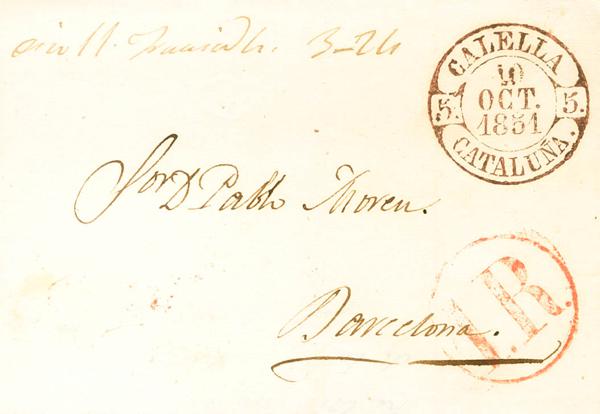 3-24
CALELLA
10
OCT.
1851
5. 5.
CATALUÑA.
Sor D Pablo Moreu.
Barcelona.
J.R.